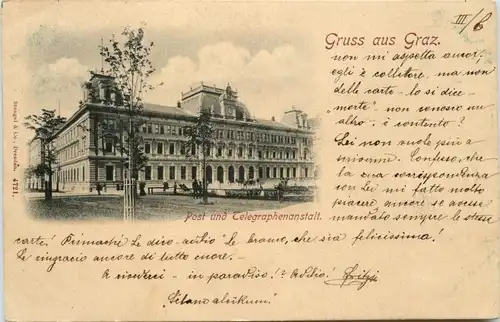 III/6
Gruss aus Graz.
non mi aspetta ancor,
egli è collettore, ma non
delle carte - lo si dice
morte" - non conosco un
altro, è contento?
Lei non vuole più a
Confesso, che
la sua corrispondenza
con Lei mi fatto molto
piacere ancora se avesse
mandato sempre le stesse
Post und Telegraphenanstalt.
Stengel & Co., Dresden. 1771.
carte! Le dico - "Le bramo, che sia felicissima!
Le ringrazio ancora di tutto cuore. -
A rivederci - in paradiso!? Addio! Fritzi